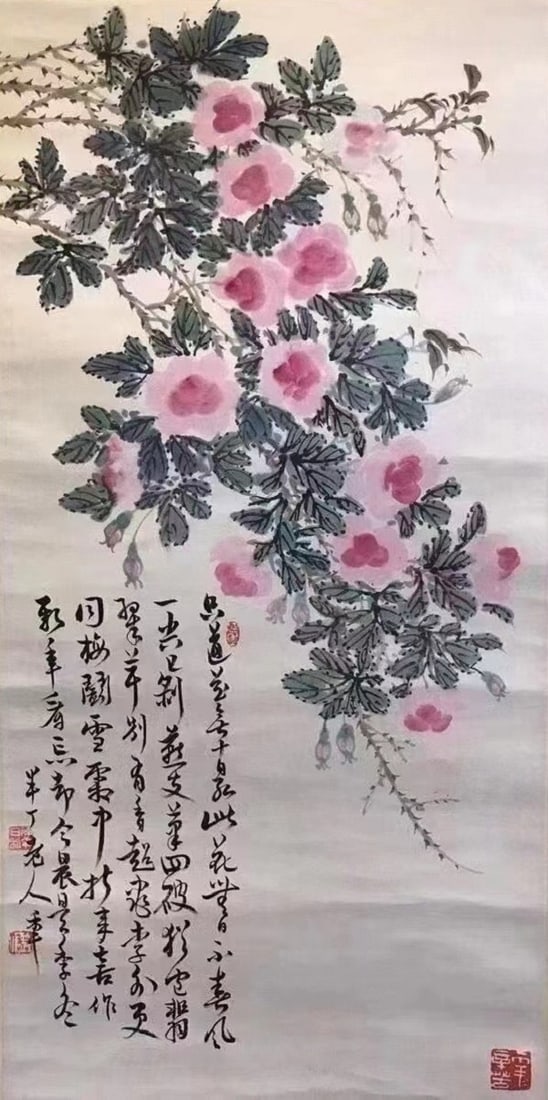 只道花无十日紅此花無日不春风
一尖已剥燕支筆四破猶包翡
翠茸别有香超桃李外更
同梅鬭雪霜中折来喜作
新年看忘却今晨是季冬
半丁老人年